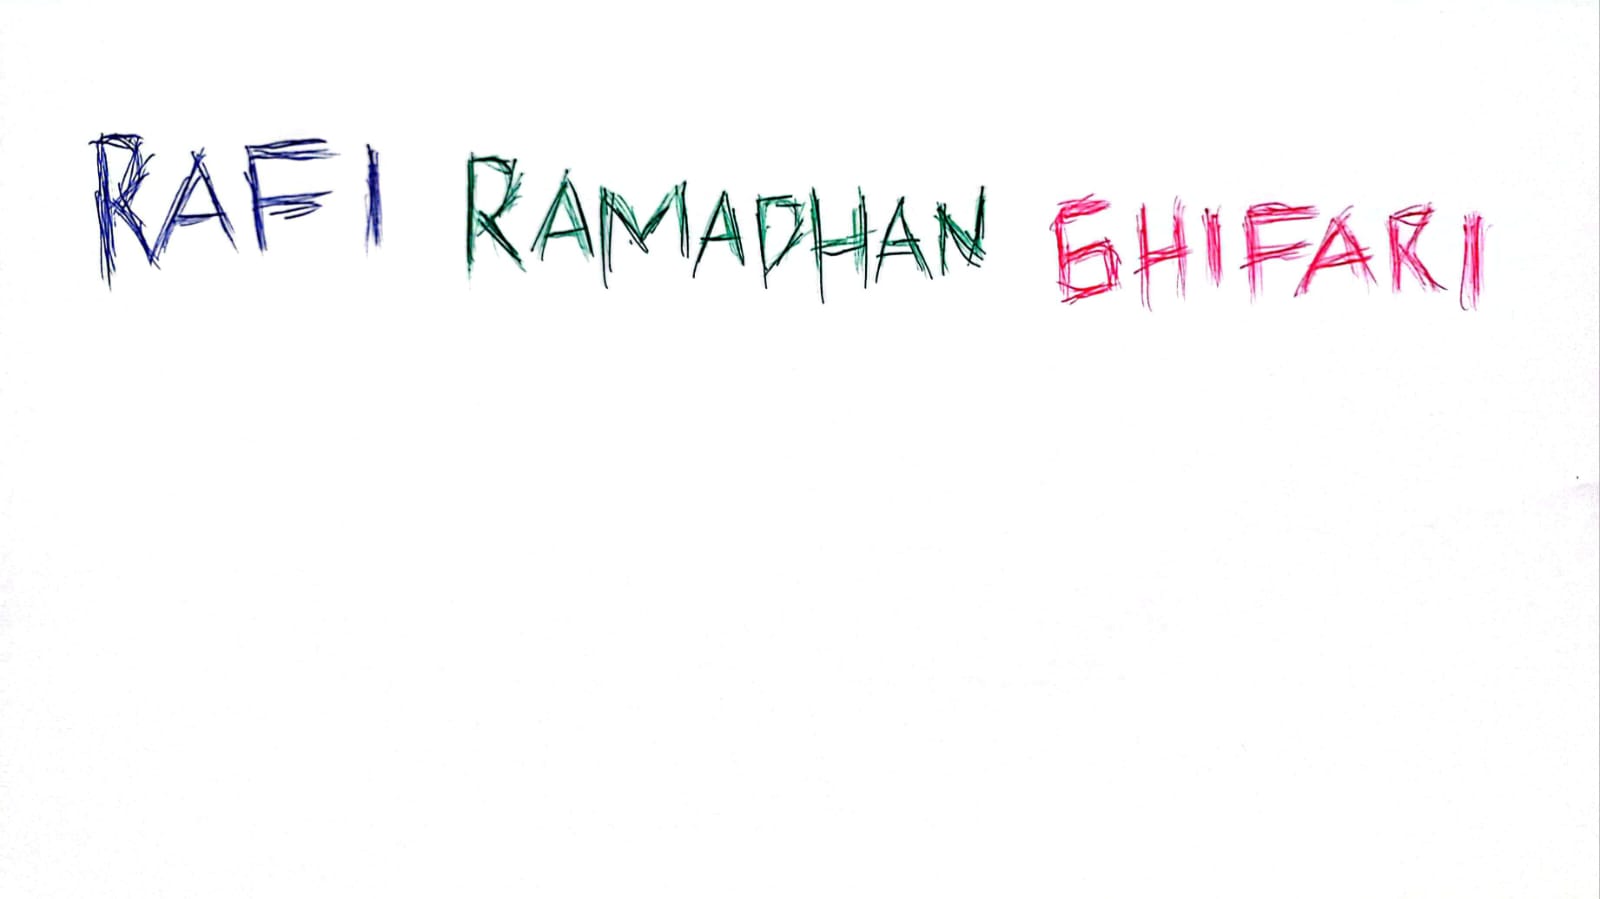 RAFI RAMADHAN GHIFARI